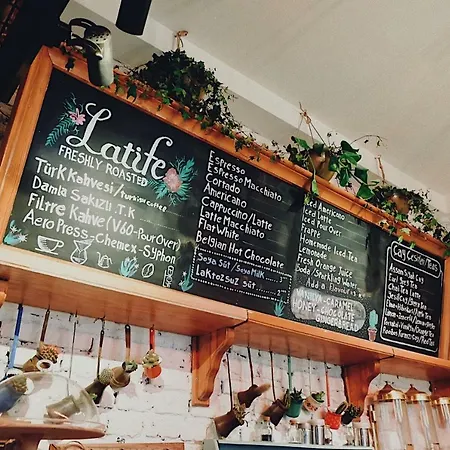 Latife
FRESHLY ROASTED
Türk Kahvesi/Turkish Coffee
Damla Sakızlı T.K
Filtre Kahve (V60-Pour Over)
Aero Press-Chemex-Syphon
Espresso
Espresso Macchiato
Cortado
Americano
Cappucino/Latte
Latte Macchiato
Flat White
Belgian Hot Chocolate
Soya Süt/Soya Milk
Laktozsuz Süt
Iced Americano
Iced Latte
Iced Pour Over
Frappe
Homemade Iced Tea
Lemonade
Fresh Orange Juice
Soda/Sparkling Water
Add a Flavour
VANILLA-CARAMEL
HONEY-CHOCOLATE
GINGERBREAD
Çay Çeşitleri/Teas
Assam
Earl Grey Tea
Chai Tea Latte